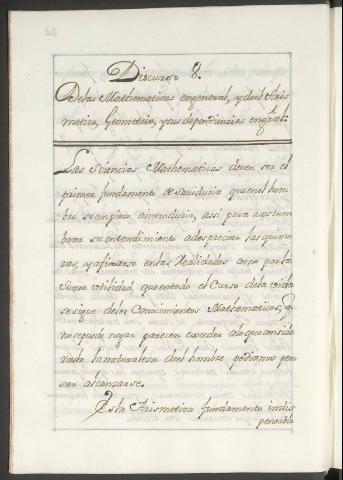 Discurso 8.
De las Mathematicas en general, y de el Aris
metica, Geometria, y sus dependencias en gral.
Las Sciencias Mathematicas deven ser el
primer fundamento de Saviduria que en el hom
bre se empieze a introducir, assi para acostum
brar su entendimiento a despreciar las quime
ras, y afixarse en las Realidades como por la
Suma utilidad, que en todo el Curso de la vida
se sigue de los Conocimientos Mathematicos, q.
no se puede negar parecen exceder a lo que conside
rada la naturaleza de el hombre podiamos pen
sar alcanzarse.
Es la Arismetica fundamento indis
pensable